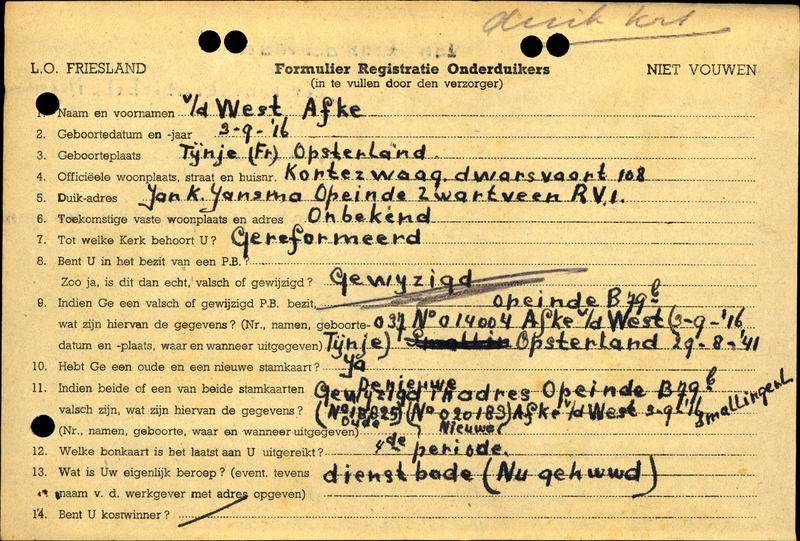 L.O. FRIESLAND
Formulier Registratie Onderduikers
NIET VOUWEN
(in te vullen door den verzorger)
1. Naam en voornamen v/d West Afke
2. Geboortedatum en -jaar 3-9-'16
3. Geboorteplaats Tÿnje (Fr) Opsterland.
4. Officiëele woonplaats, straat en huisnr. Kortezwaag, dwarsvaart 108
5. Duik-adres Jan K. Jansma Opeinde Zwartveen R.V.1.
6. Toekomstige vaste woonplaats en adres Onbekend
7. Tot welke Kerk behoort U? Gereformeerd
8. Bent U in het bezit van een P.B.?
Zoo ja, is dit dan echt, valsch of gewijzigd? Gewyzigd
9. Indien Ge een valsch of gewijzigd P.B. bezit, opeinde B79b
wat zijn hiervan de gegevens? (Nr., namen, geboorte- 037 No 014004 Afke v/d West (3-9-'16
datum en -plaats, waar en wanneer uitgegeven) Tÿnje) Opsterland 29-8-'41
10. Hebt Ge een oude en een nieuwe stamkaart? Ja
De nieuwe
11. Indien beide of een van beide stamkaarten Gewyzigd in adres Opeinde B79b
Smallingerl
valsch zijn, wat zijn hiervan de gegevens? (No 18825) (No 020189) Afke v/d West 3-9-'16
(Nr., namen, geboorte, waar en wanneer uitgegeven) Oude Nieuwe
12. Welke bonkaart is het laatst aan U uitgereikt? 4de periode.
13. Wat is Uw eigenlijk beroep? (event. tevens dienstbode (Nu gehuwd)
naam v. d. werkgever met adres opgeven)
14. Bent U kostwinner?